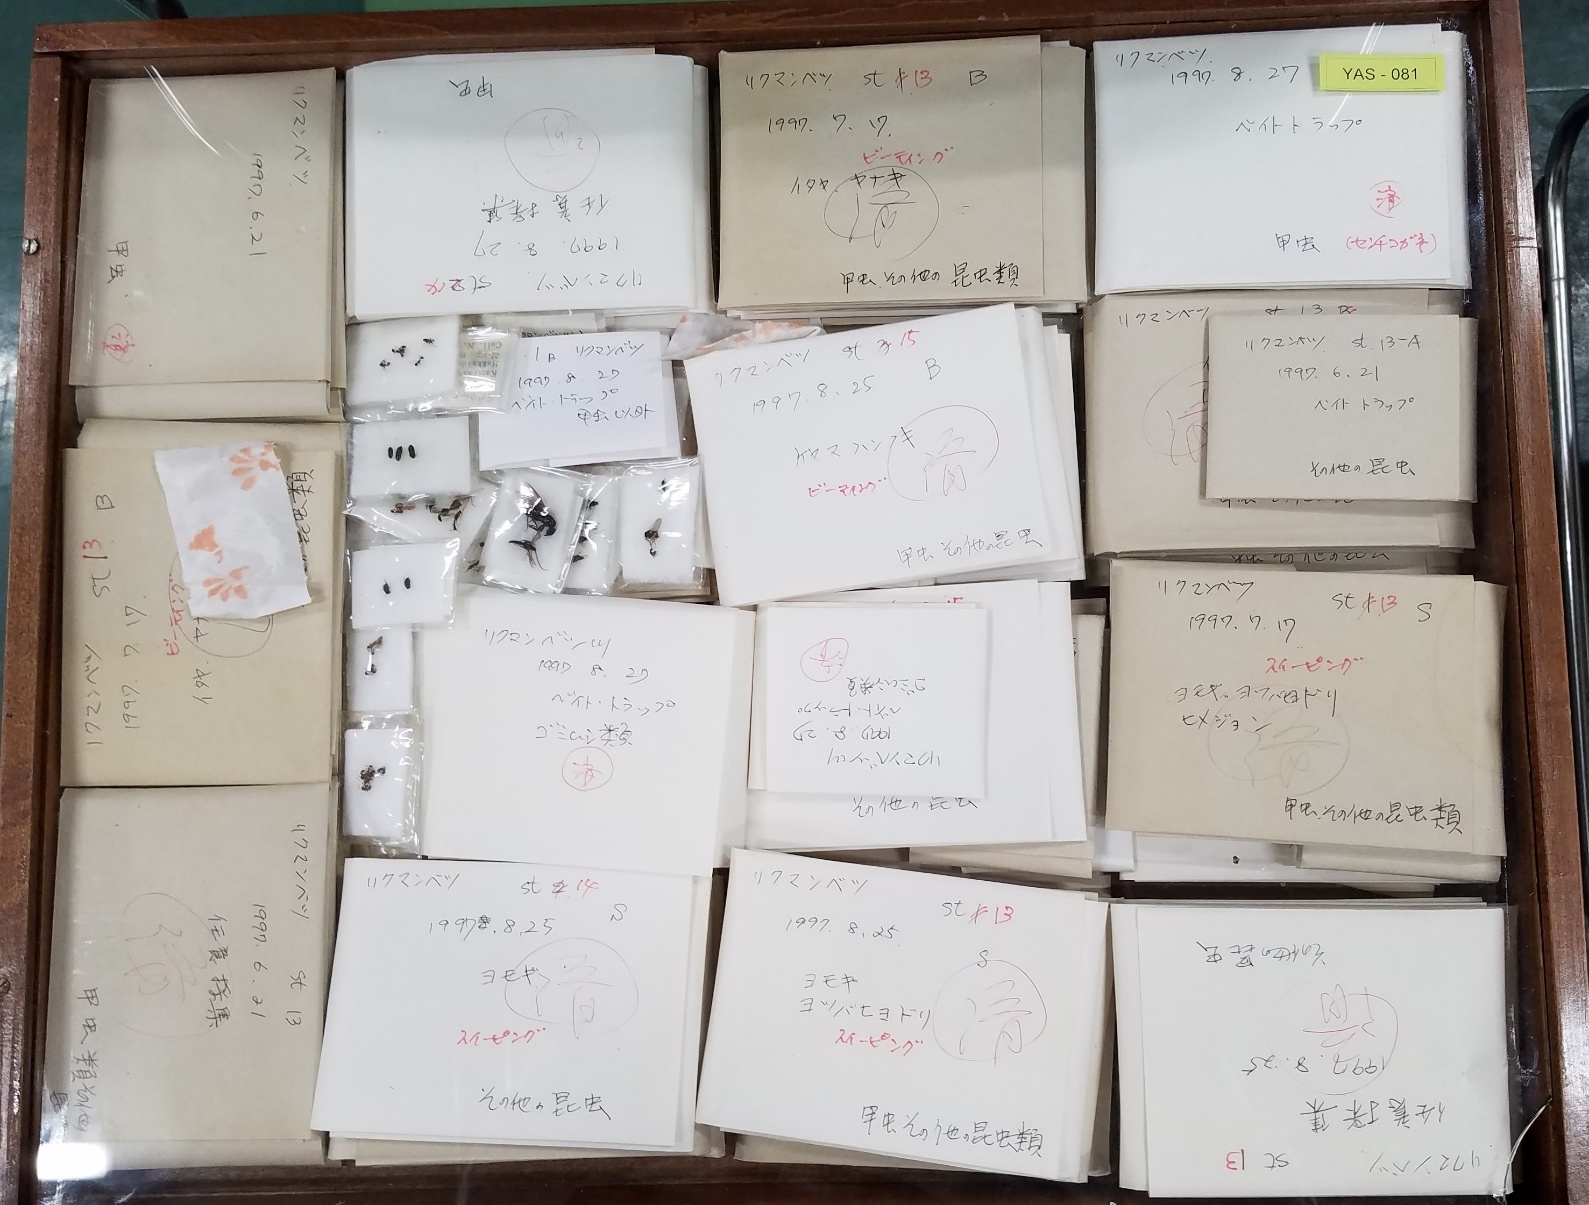 リクマンベツ
1997. 6. 21
甲虫
済
甲虫
済
任意採集
1997. 8. 27
リクマンベツ st
リクマンベツ st #13 B
1997. 7. 17.
ビーティング
イタヤ ヤナギ
済
甲虫、その他の昆虫類
リクマンベツ
1997. 8. 27
YAS - 081
ベイトトラップ
済
甲虫 (センチコガネ)
リクマンベツ
1997. 8. 27
ベイト・トラップ
甲虫以外
リクマンベツ st #15
1997. 8. 25 B
ケヤマハンノキ
済
ビーティング
甲虫 その他の昆虫
リクマンベツ st 13 B
済
リクマンベツ st. 13-A
1997. 6. 21
ベイトトラップ
その他の昆虫
リクマンベツ st 13 B
1997. 7. 17.
ビーティング
イタヤ
リクマンベツ
1997 8. 27
ベイト・トラップ
ゴミムシ類
済
済
ゴミムシ以外
ベイト・トラップ
1997. 8. 27
リクマンベツ
その他の昆虫
リクマンベツ
st #13 S
1997. 7. 17
スイーピング
ヨモギ、ヨツバヒヨドリ
ヒメジョン
済
甲虫、その他の昆虫類
リクマンベツ st 13
1997. 6. 21
任意採集
済
リクマンベツ st #14
1997. 8. 25 S
ヨモギ
済
スイーピング
その他の昆虫
リクマンベツ
st #13
1997. 8. 25.
S
ヨモギ
ヨツバヒヨドリ
済
スイーピング
甲虫 その他の昆虫類
その他の昆虫
済
1997. 8. 25
任意採集
リクマンベツ st 13